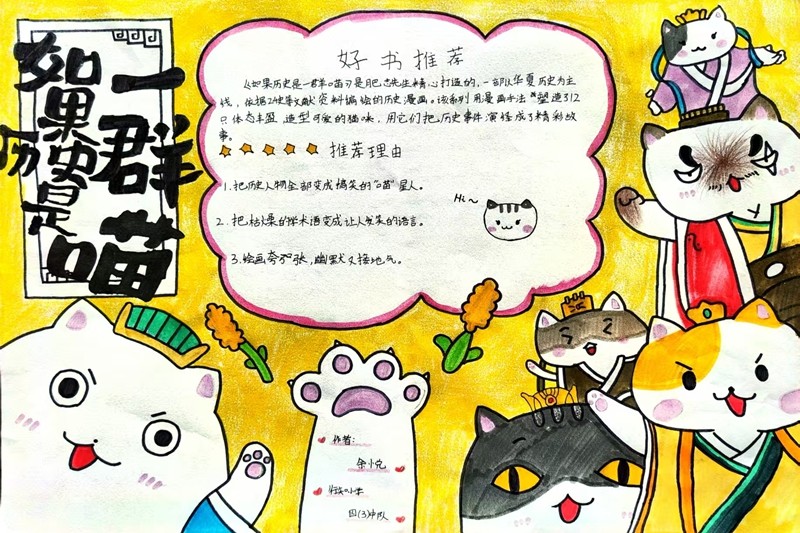 如果历史是
一群喵
好书推荐
《如果历史是一群喵》是肥志先生精心打造的,一部以华夏历史为主
线,依据24史等文献资料编绘的历史漫画。该系列用漫画手法塑造了12
只体态丰盈、造型可爱的猫咪,用它们把历史事件演绎成了精彩故
事。
推荐理由
1.把历史人物全部变成搞笑的“喵”星人。
Hi~
2.把枯燥的学术语变成让人发笑的语言。
3.绘画夸张,幽默又接地气。
作者:
四(3)中队